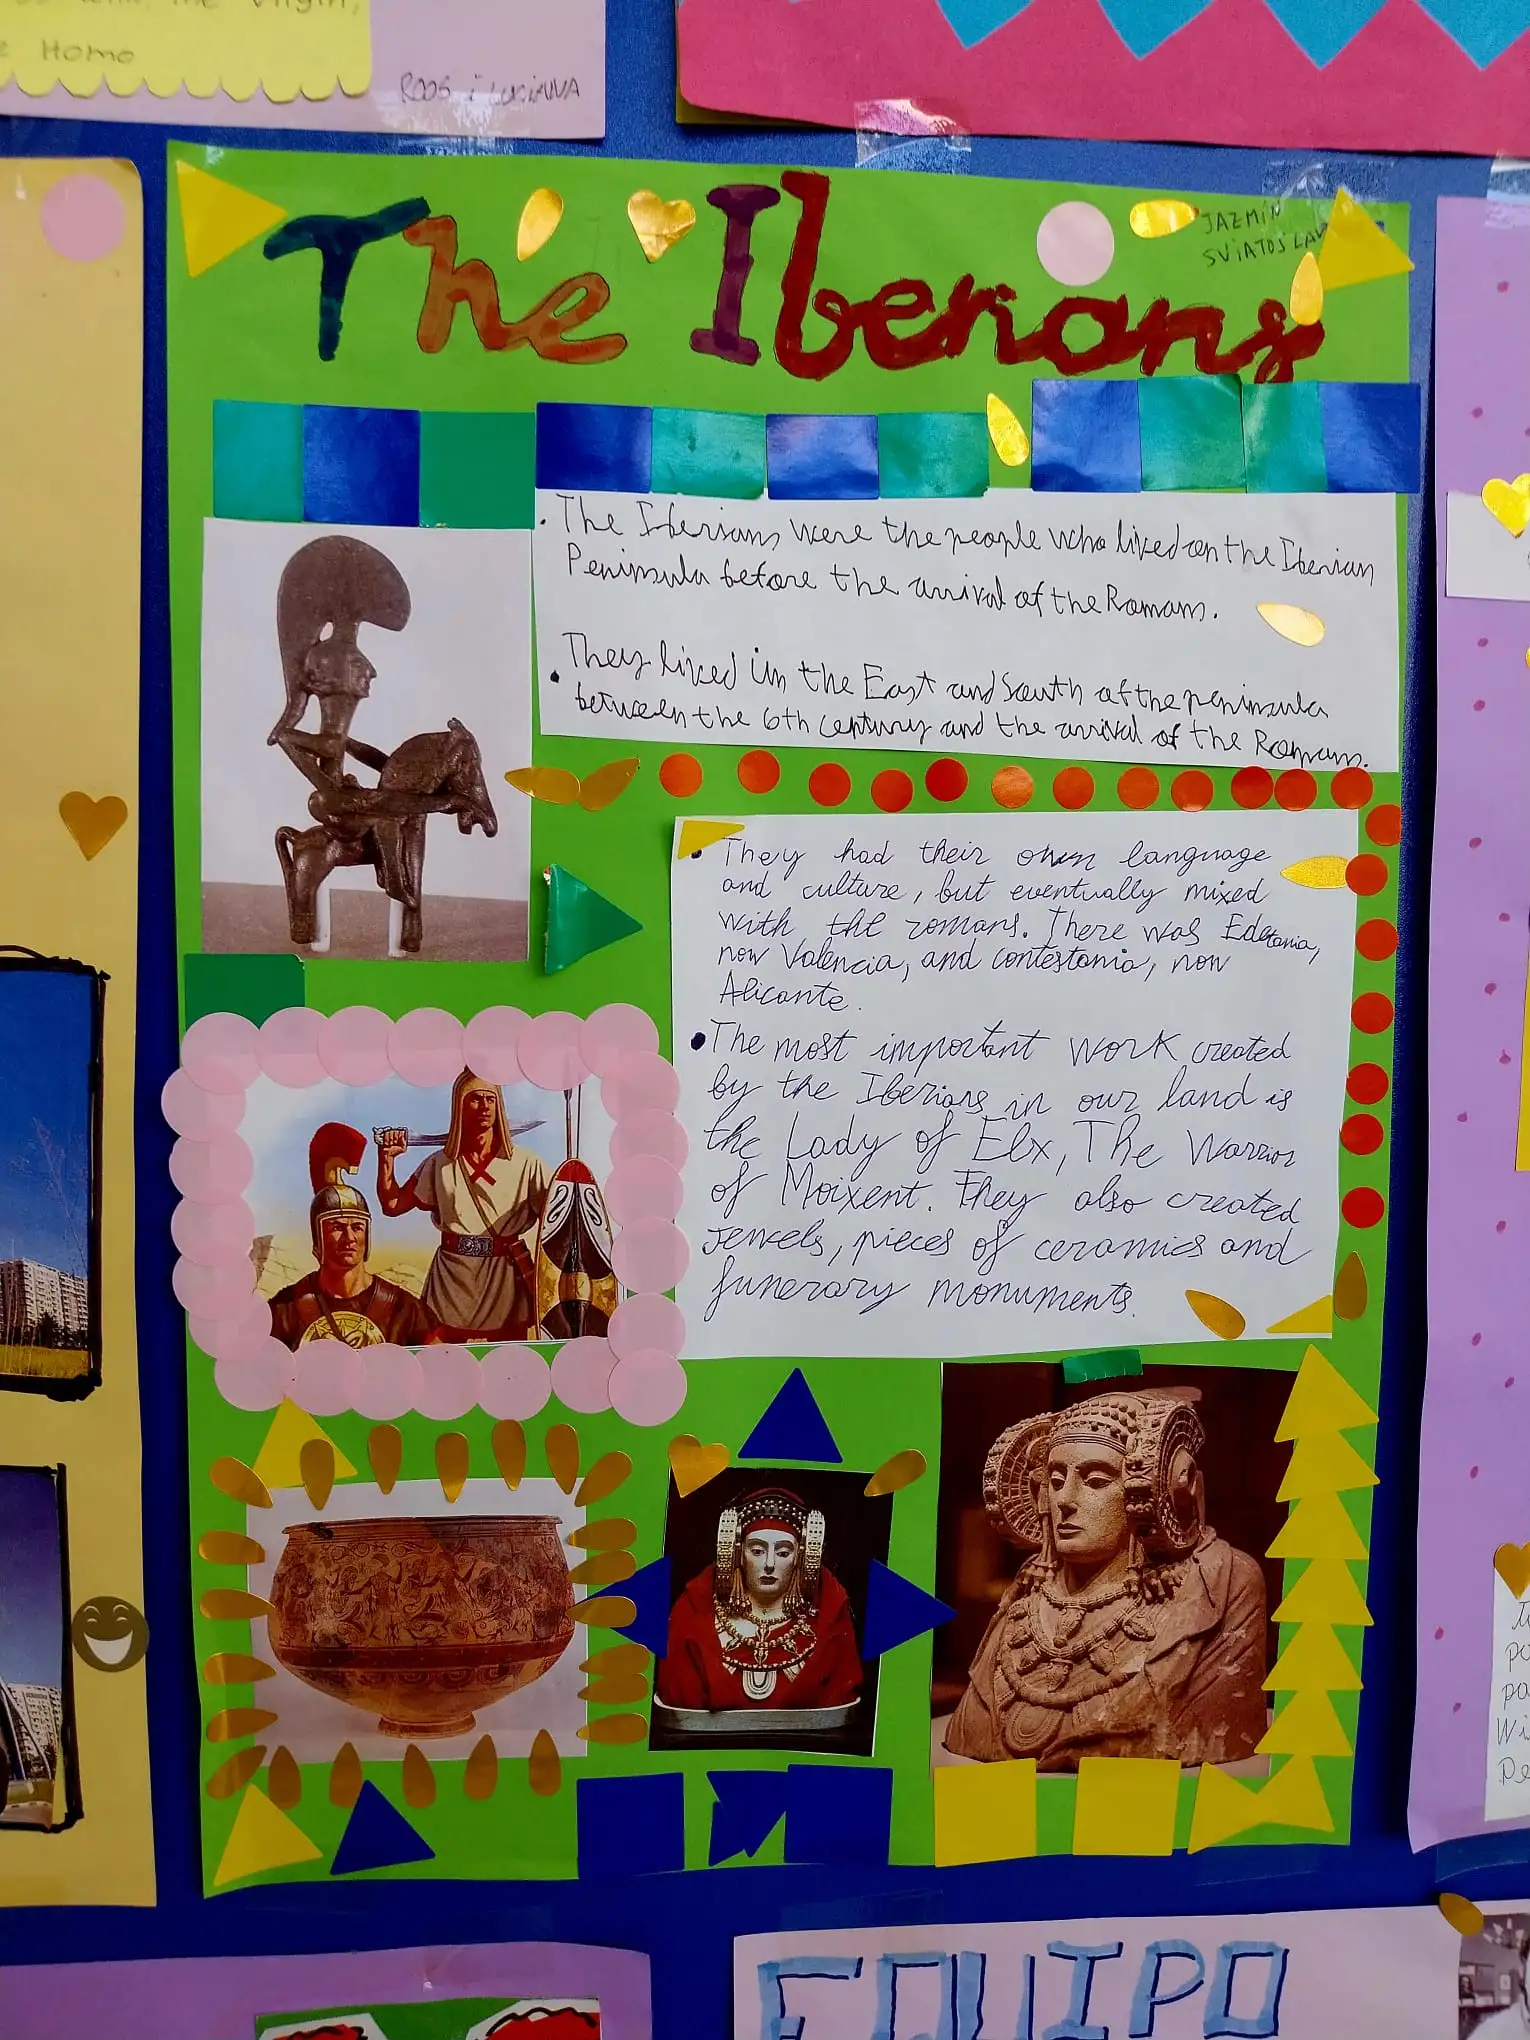 the Virgin,
Homo
ROOS i LUCIANA
The Iberians
JAZMÍN
SVIATOSLAV
. The Iberians were the people who lived on the Iberian
Peninsula before the arrival of the Romans.
• They lived in the East and South of the peninsula
between the 6th century and the arrival of the Romans.
• They had their own language
and culture, but eventually mixed
with the romans. There was Edetania,
now Valencia, and contestania, now
Alicante.
• The most important work created
by the Iberians in our land is
the Lady of Elx, The Warrior
of Moixent. They also created
jewels, pieces of ceramics and
funerary monuments.
EQUIPO